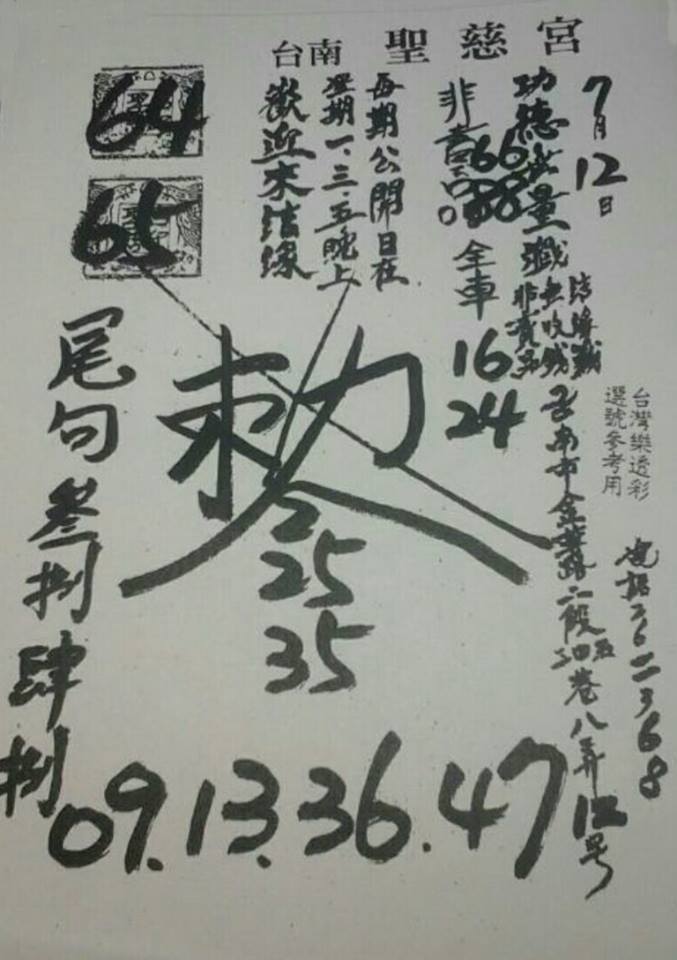 台南 聖慈宮
7月12日
功德無量
結緣
非賣品
66
88
全車
16
24
每期公開日在
星期一、三、五晚上
歡迎來結緣
64
65
台灣樂透彩
選號參考用
台南市金華路二段
巷八弄12号
電話2622368
敕
2
25
35
尾句
叁捌
肆捌
09.13.36.47